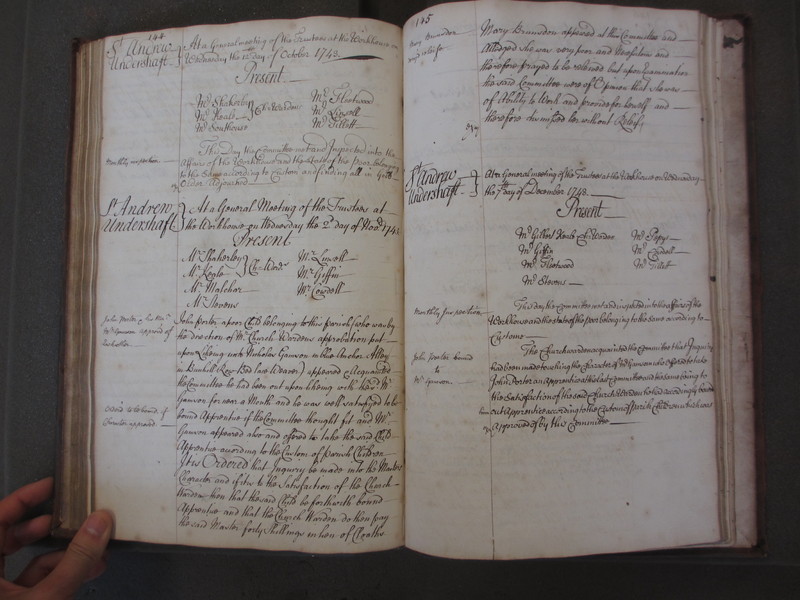 144
St. Andrew
Undershaft
At a General meeting of the Trustees at the Workhouse on
Wednesday the 12th day of October 1748
Present
Mr. Skakerley
Mr. Keate
Ch: Wardens
Mr. Southouse
Mr. Fleetwood
Mr. Lowell
Mr. Tillett
Monthly inspection
This Day the Committee met and Inspected into the
Affairs of the Workhouse and the state of the Poor belonging
to the Same according to Custom and finding all in Good
Order Adjourned
St. Andrew
Undershaft
At a General Meeting of the Trustees at
the Workhouse on Wednesday the 2d. day of Novr. 1748
Present
Mr. Skakerley
Mr. Keate
Ch: Wardn.
Mr. Malchar
Mr. Stevens
Mr. Lowell
Mr. Giffin
Mr. Cordell
John Porter
Mr. Gamson approved of
John Porter a poor Child belonging to this Parish (who was by
the direction of the Church Wardens approbation put
upon likeing with Nicholas Gamson in Blue Anchor Alley
in Bunhill Row Bed lace Weaver) appeared Acquainted
the Committee he had been out upon likeing with the sd. Mr.
Gamson for near a Month and he was well satisfied to be
bound Apprentice if the Committee thought fit and Mr.
Gamson appeared also and offered to take the said Child
Apprentice according to the Custom of Parish Children
It is Ordered that Inquiry be made into the Masters
Character and if it is to the Satisfaction of the Church
Warden then that the said Child be forthwith bound
Apprentice and that the Church Warden do then pay
the said Master forty Shillings in lieu of Cloaths
Ordered to be bound if
Character approved
145
Mary Brumsdon
Mary Brumsdon appeared at this Committee and
Alledged she was very poor and Destitute and
therefore prayed to be relieved but upon Examination
the said Committee were of Opinion that she was
of Ability to Work and provide for herself and
therefore dismissed her without Relief
St. Andrew
Undershaft
At a General meeting of the Trustees at the Workhouse on Wednesday
the 7th. day of December 1748
Present
Mr. Gilbert Keate Ch: Warden
Mr. Giffin
Mr. Fleetwood
Mr. Stevens
Mr. Pepys
Mr. Cordell
Mr. Tillet
Monthly Inspection
This day the Committee met and inspected into the affairs of the
Workhouse and the state of the poor belonging to the same according to
Custome
John Porter bound
to
Mr. Gamson
The Churchwarden acquainted the Committee that Inquiry
had been made touching the Character of Mr. Gamson who offered to take
John Porter an Apprentice at the last Committee and the same being to
the Satisfaction of the said Church Warden he had accordingly bound
him out Apprentice according to the Custom of Parish Children which was
Approved of by this Committee